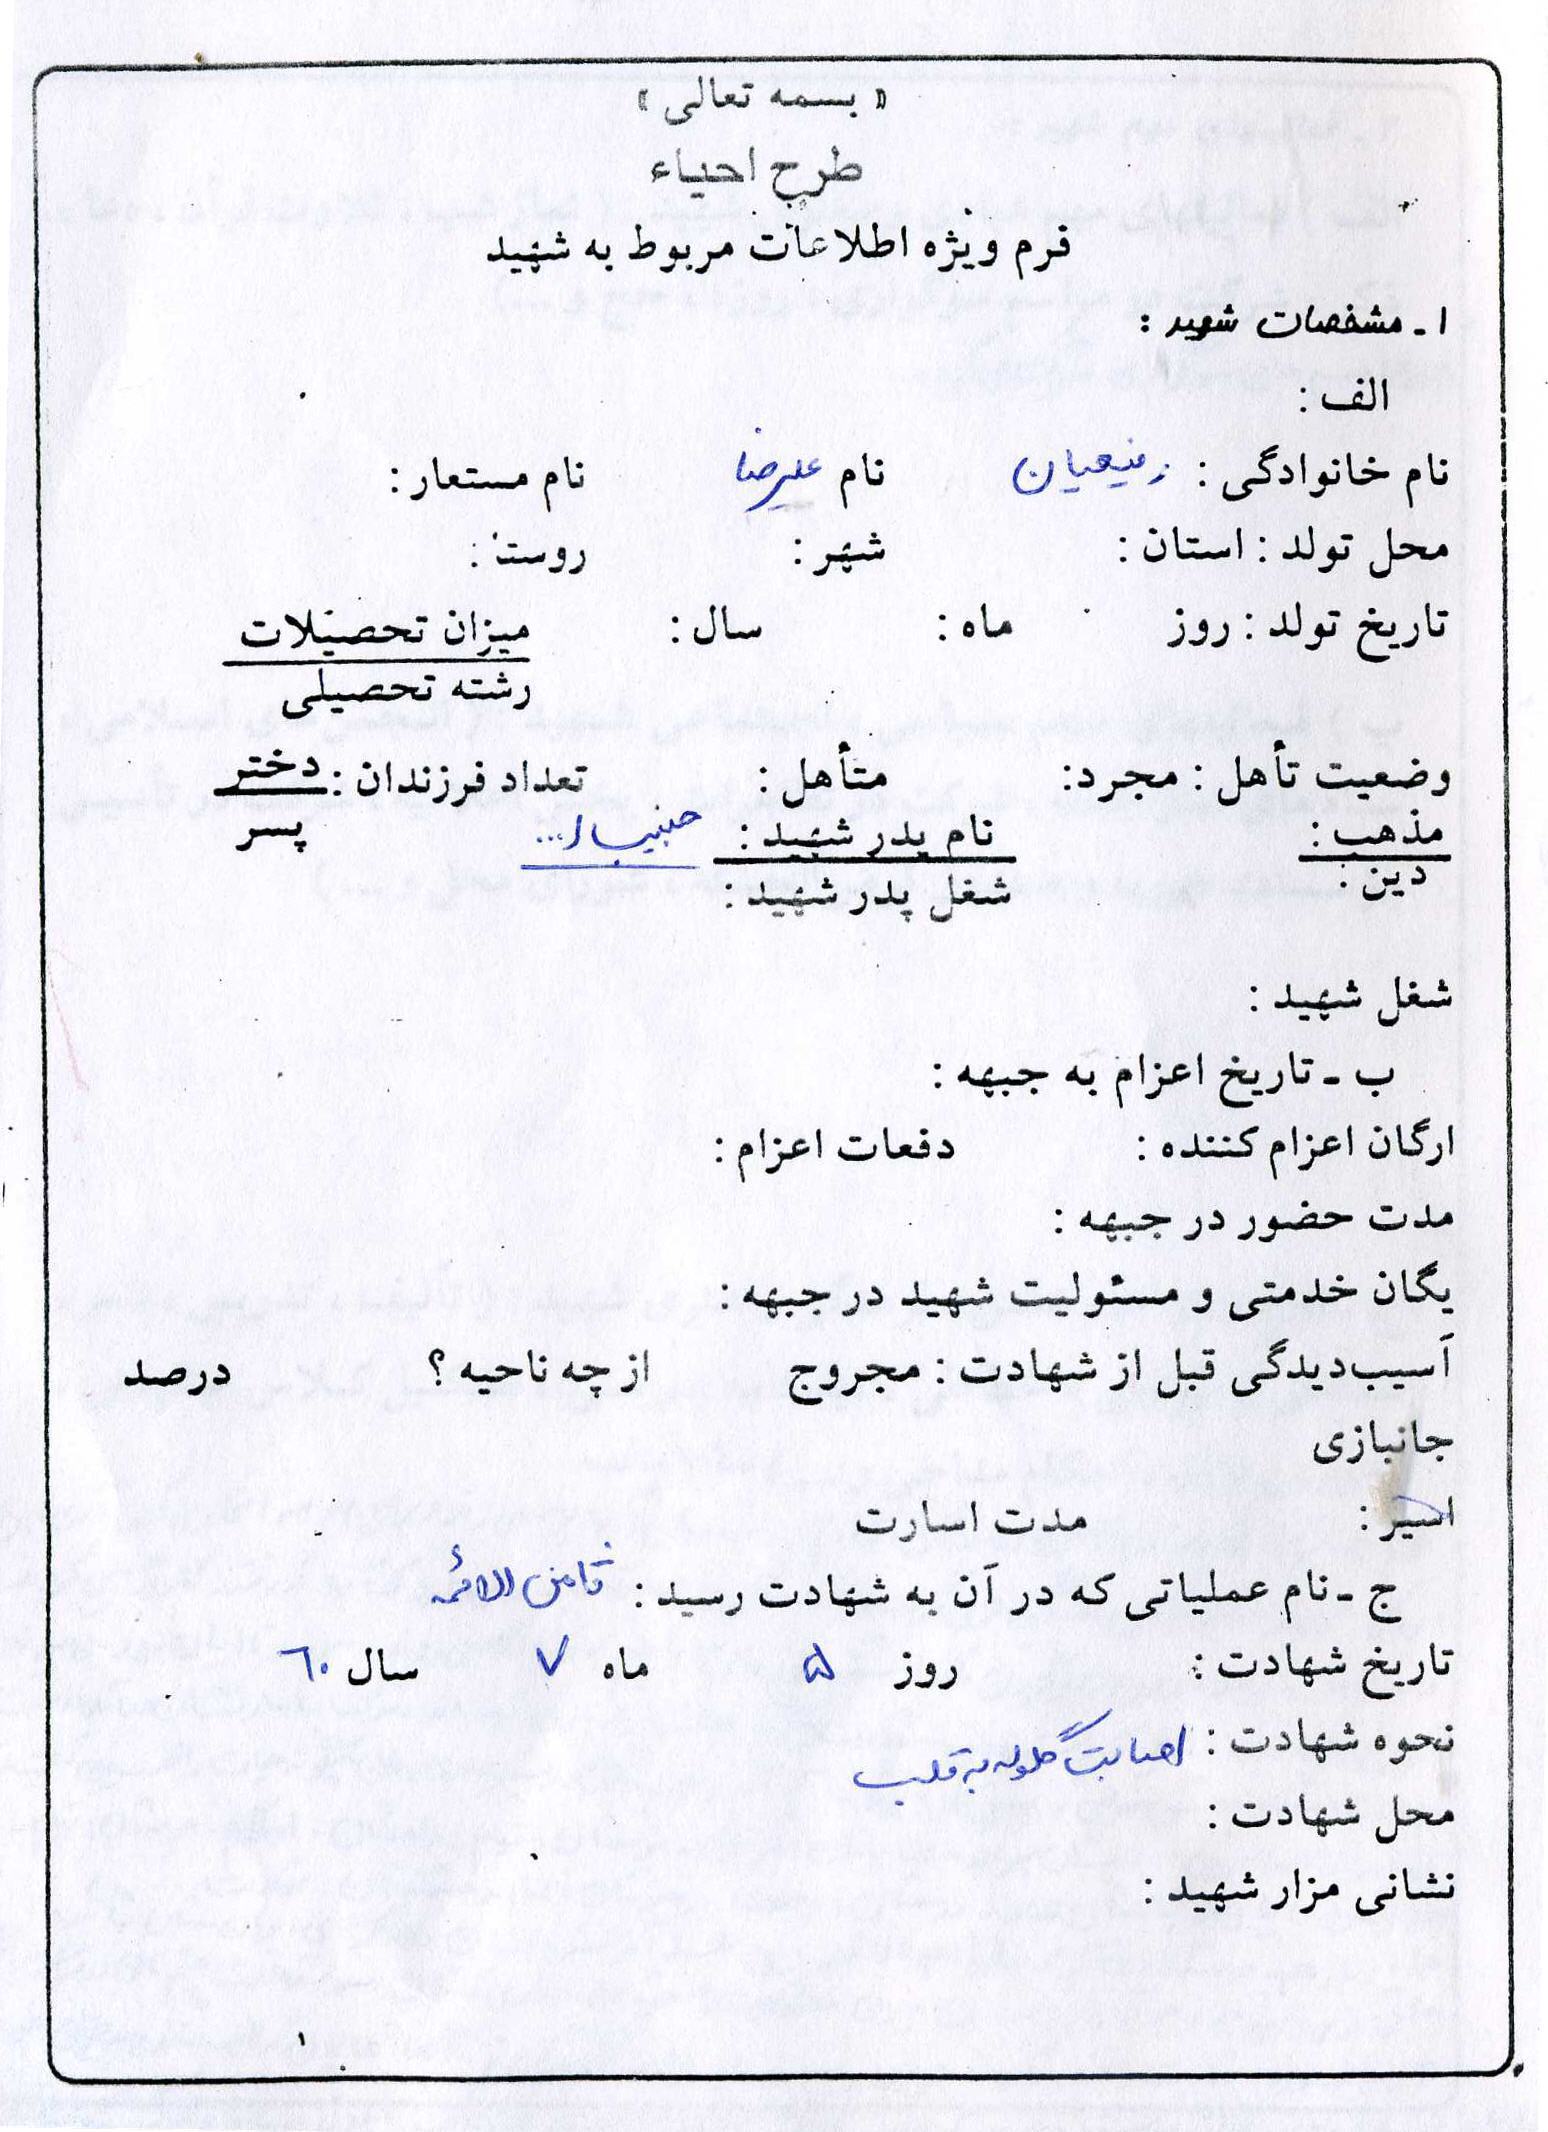 « بسمه تعالی »
طرح احیاء
فرم ویژه اطلاعات مربوط به شهید
۱ ـ مشخصات شهید :
الف :
نام خانوادگی : رفیعیان نام علیرضا نام مستعار :
محل تولد : استان : شهر : روستا :
تاریخ تولد : روز ماه : سال : میزان تحصیلات
رشته تحصیلی
وضعیت تأهل : مجرد: متأهل : تعداد فرزندان : دختر
مذهب : نام پدر شهید : حبیب ا... پسر
دین : شغل پدر شهید :
شغل شهید :
ب ـ تاریخ اعزام به جبهه :
ارگان اعزام کننده : دفعات اعزام :
مدت حضور در جبهه :
یگان خدمتی و مسئولیت شهید در جبهه :
آسیب‌دیدگی قبل از شهادت : مجروح از چه ناحیه ؟ درصد
جانبازی
اسیر : مدت اسارت
ج ـ نام عملیاتی که در آن به شهادت رسید : ثامن الائمه
تاریخ شهادت : روز ۵ ماه ۷ سال ۶۰
نحوه شهادت : اصابت گلوله به قلب
محل شهادت :
نشانی مزار شهید :
۱